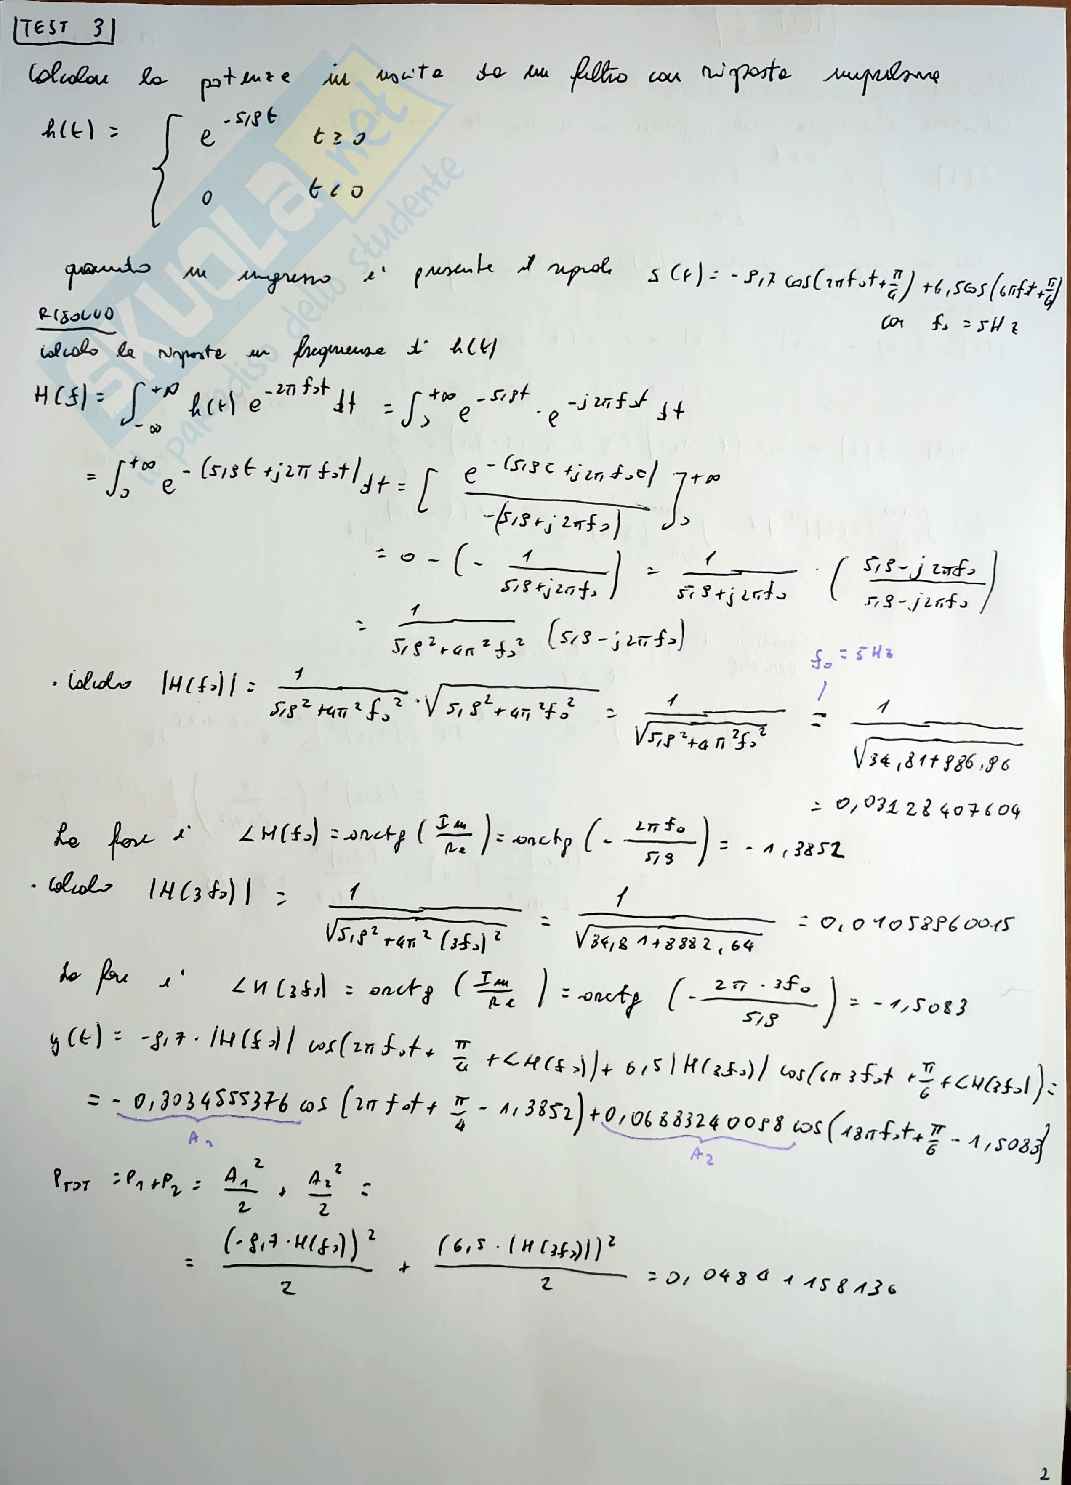 TEST 3
Calcolare la potenza in uscita da un filtro con risposta impulsiva
h(t) = { e^{-5,9t} t ≥ 0
0 t < 0
quando in ingresso è presente il segnale s(t) = -9,7 cos(2πf₀t+π/4) + 6,5 cos(6πf₀t+π/6)
con f₀ = 5Hz
RISOLVO
calcolo la risposta in frequenza di h(t)
H(f) = ∫_{-∞}^{+∞} h(t) e^{-2πf₀t} dt = ∫_0^{+∞} e^{-5,9t} · e^{-j2πf₀t} dt
= ∫_0^{+∞} e^{-(5,9t+j2πf₀t)} dt = [ e^{-(5,9t+j2πf₀t)} / -(5,9+j2πf₀) ]_0^{+∞}
= 0 - (- 1/(5,9+j2πf₀)) = 1/(5,9+j2πf₀) · ((5,9-j2πf₀)/(5,9-j2πf₀))
= 1/(5,9²+4π²f₀²) (5,9-j2πf₀)
f₀ = 5Hz
· Calcolo |H(f₀)| = 1/(5,9²+4π²f₀²) · √(5,9²+4π²f₀²) = 1/√(5,9²+4π²f₀²) = 1/√(34,81+986,96)
= 0,03128407604
La fase è ∠H(f₀) = arctg(Im/Re) = arctg(- 2πf₀/5,9) = -1,3852
· Calcolo |H(3f₀)| = 1/√(5,9²+4π²(3f₀)²) = 1/√(34,81+8882,64) = 0,01058960015
La fase è ∠H(3f₀) = arctg(Im/Re) = arctg(- 2π·3f₀/5,9) = -1,5083
y(t) = -9,7·|H(f₀)| cos(2πf₀t+π/4+∠H(f₀)) + 6,5|H(3f₀)| cos(6π3f₀t+π/6+∠H(3f₀)) =
= -0,3034555376 cos(2πf₀t+π/4-1,3852) + 0,06883240098 cos(18πf₀t+π/6-1,5083)
A₁ A₂
P_TOT = P₁+P₂ = A₁²/2 + A₂²/2 =
= (-9,7·H(f₀))²/2 + (6,5·|H(3f₀)|)²/2 = 0,04841158136
2
SKUOLA.net
il paradiso dello studente